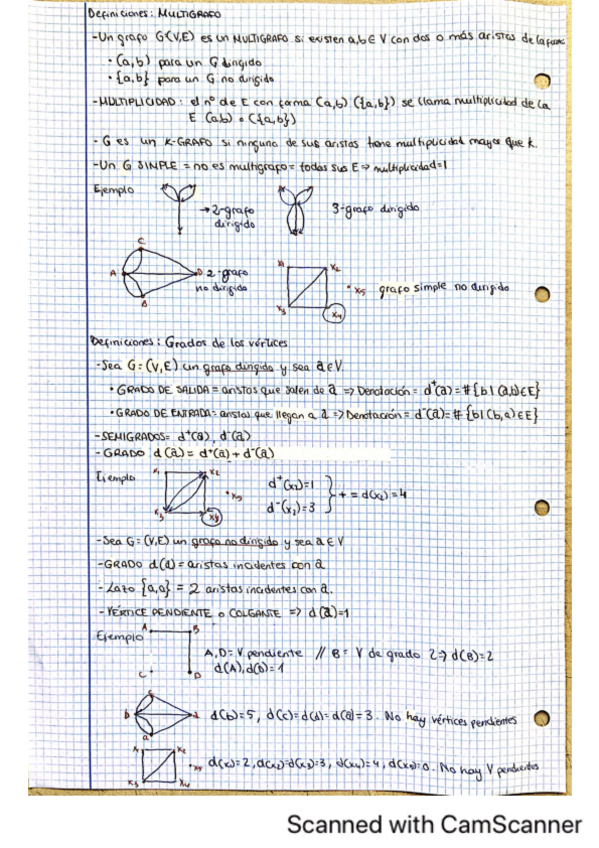 Definiciones: MULTIGRAFO
-Un grafo G(V,E) es un MULTIGRAFO si existen a,b ∈ V con dos o más aristas de la forma
• (a,b) para un G dirigido
• {a,b} para un G no dirigido
-MULTIPLICIDAD: el nº de E con forma (a,b) ({a,b}) se llama multiplicidad de la
E (a,b) o ({a,b})
- G es un K-GRAFO si ninguna de sus aristas tiene multiplicidad mayor que k.
-Un G SIMPLE = no es multigrafo = todas sus E => multiplicidad=1
Ejemplo
→2-grafo
dirigido
3-grafo dirigido
C
A
D
B
2-grafo
no dirigido
x1
x2
x3
x4
•x5
grafo simple no dirigido
Definiciones: Grados de los vértices
-Sea G=(V,E) un grafo dirigido y sea a ∈ V
• GRADO DE SALIDA = aristas que salen de a => Denotación = d⁺(a) = #{b | (a,b) ∈ E}
• GRADO DE ENTRADA = aristas que llegan a a => Denotación = d⁻(a) = #{b | (b,a) ∈ E}
-SEMIGRADOS= d⁺(a), d⁻(a)
-GRADO d(a) = d⁺(a) + d⁻(a)
Ejemplo
x1
x2
x3
x4
•x5
d⁺(x2)=1
d⁻(x2)=3
} + = d(x2) = 4
-Sea G=(V,E) un grafo no dirigido y sea a ∈ V
-GRADO d(a) = aristas incidentes con a
-Lazo {a,a} = 2 aristas incidentes con a.
-VÉRTICE PENDIENTE o COLGANTE => d(a)=1
Ejemplo
A
B
C
D
A,D= V pendiente // B= V de grado 2 => d(B)=2
d(A),d(D)=1
c
b
d
a
d(b)=5, d(c)=d(d)=d(a)=3. No hay vértices pendientes
x1
x2
x3
x4
•x5
d(x1)=2, d(x2)=d(x3)=3, d(x4)=4, d(x5)=0. No hay V pendientes
Scanned with CamScanner